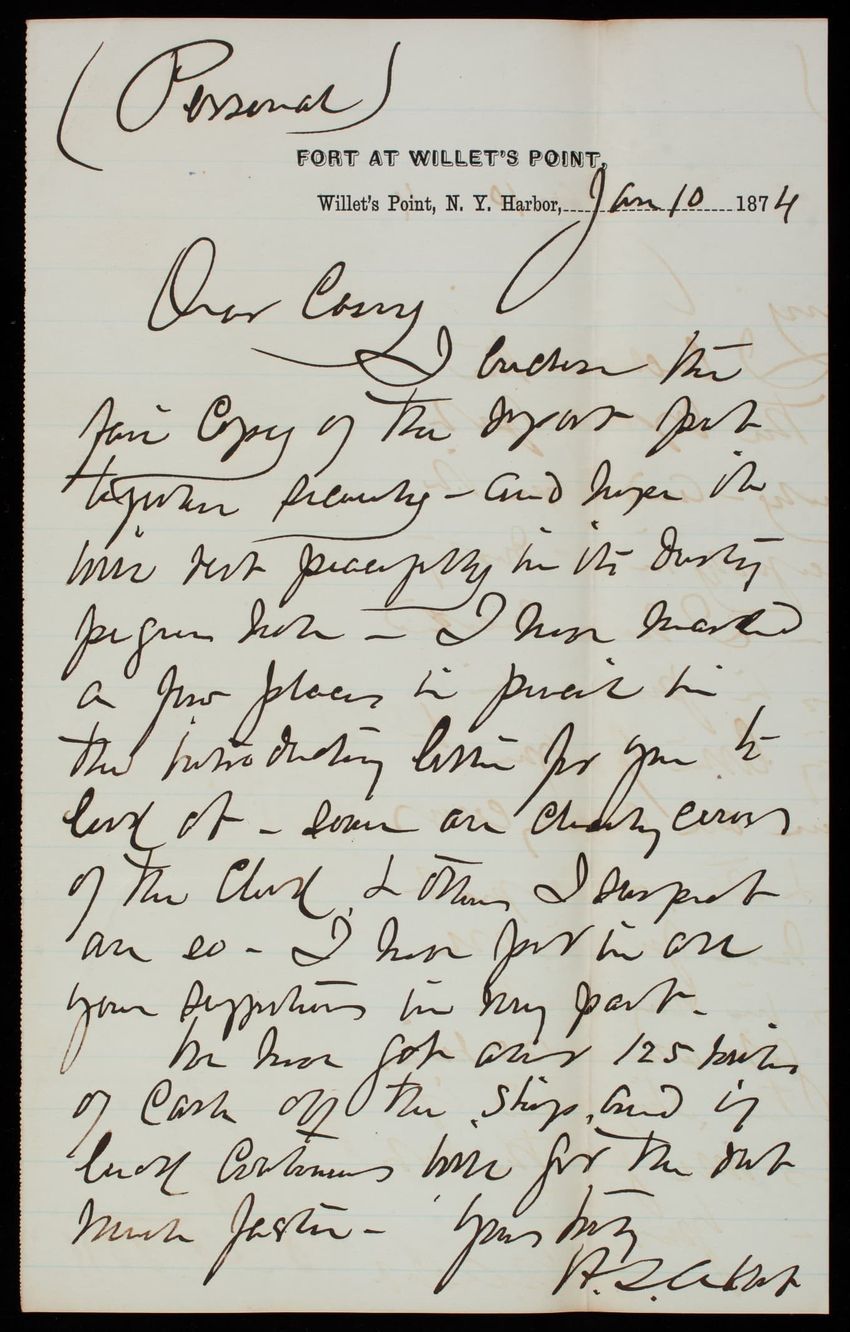 (Personal)
FORT AT WILLET'S POINT,
Willet's Point, N. Y. Harbor, Jan 10 1874
Dear Casey
I enclose the
fair copy of the report put
together securely - and hope it
will rest peacefully in its dusty
pigeon hole - I have marked
a few places in pencil in
the introductory letter for you to
look at - some are clearly errors
of the Clerk, & others I suspect
are so - I have put in all
your suggestions in my part.
We have got over 125 miles
of Cable off the ship, and if
luck continues will get the rest
much faster - Yours truly
H. L. Abbot